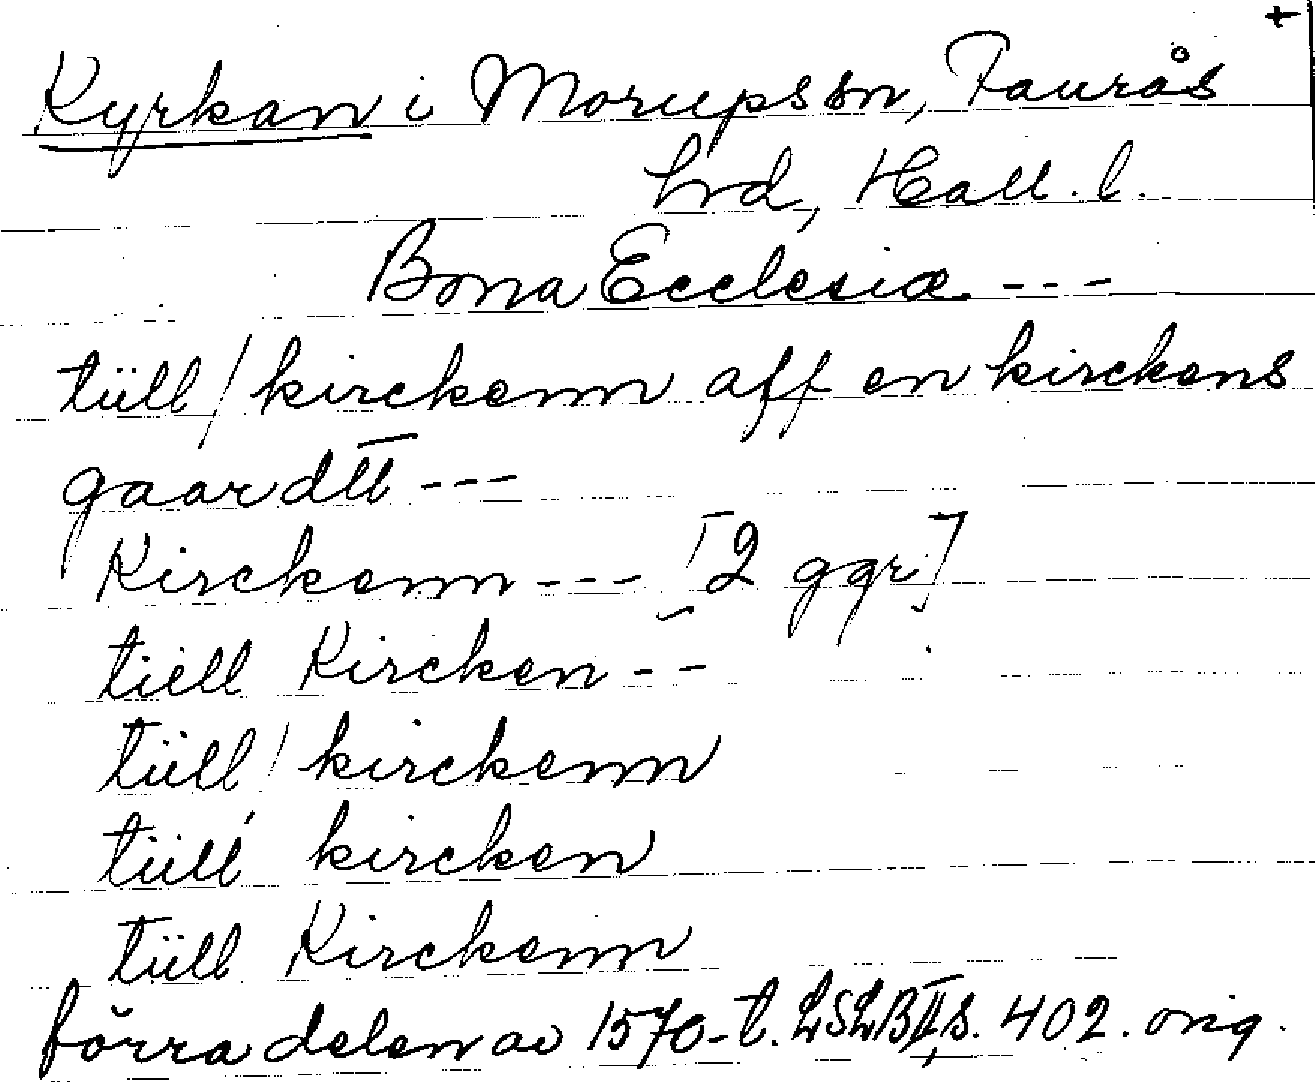 +
Kyrkan i Morups sn, Faurås
hd, Hall. l.
Bona Ecclesiæ ---
tiill / kirckenn aff en kirckens
gaardtt ---
Kirckenn --- [2 ggr]
tiell Kircken --
tiill / kirckenn
tiill kircken
tiill Kirckenn
förra delen av 1570-t. LSLB II, s. 402. orig.